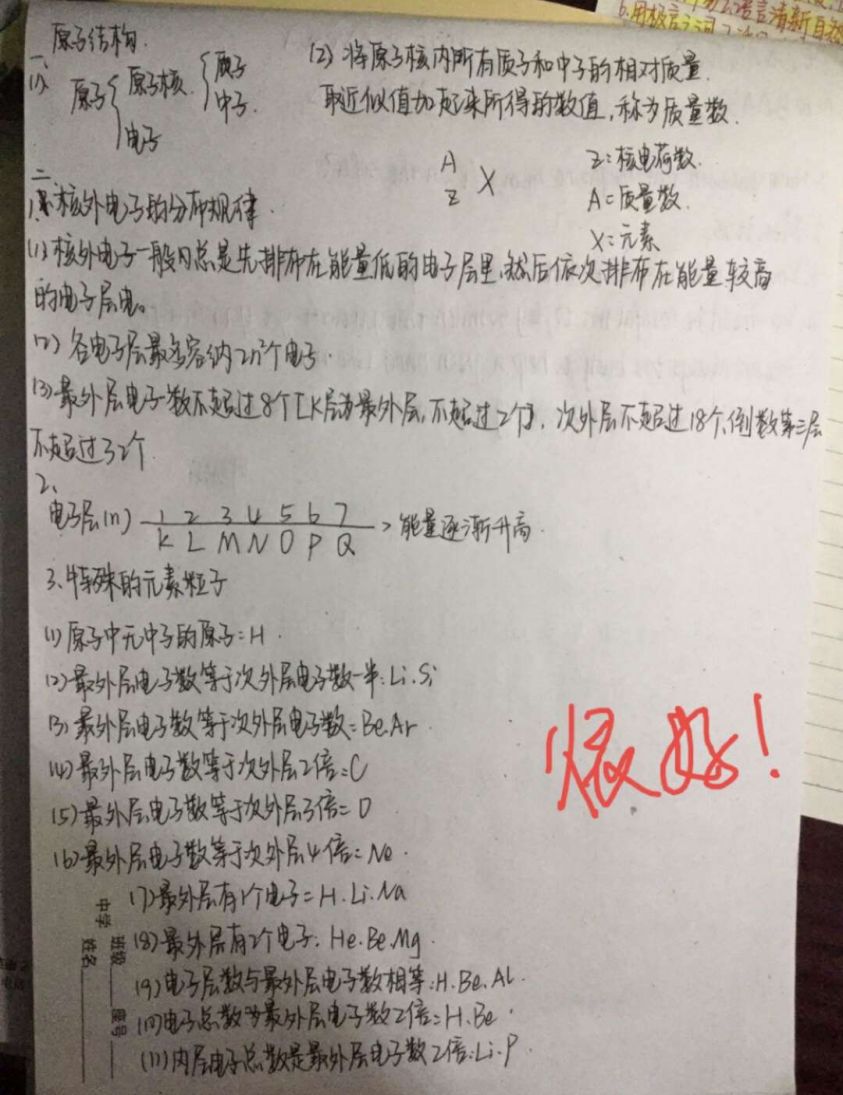 原子结构.
一、
(1) 原子 原子核. 质子
中子.
电子
(2) 将原子核内所有质子和中子的相对质量.
取近似值加起来所得的数值,称为质量数.
A
Z X
Z:核电荷数.
A=质量数.
X:元素
二、
1.核外电子的分布规律.
(1)核外电子一般总是先排布在能量低的电子层里,然后依次排布在能量较高
的电子层电。
(2) 各电子层最多容纳2n²个电子.
(3)最外层电子数不超过8个[K层为最外层,不超过2个],次外层不超过18个,倒数第三层
不超过32个.
2、
电子层(n) 1 2 3 4 5 6 7
K L M N O P Q > 能量逐渐升高.
3、特殊的元素粒子
(1)原子中无中子的原子:H.
(2)最外层电子数等于次外层电子数一半:Li.Si
(3)最外层电子数等于次外层电子数=Be.Ar.
(4)最外层电子数等于次外层2倍:C
(5)最外层电子数等于次外层3倍=O
(6)最外层电子数等于次外层4倍=Ne.
(7)最外层有1个电子=H.Li.Na
(8)最外层有2个电子:He.Be.Mg.
(9)电子层数与最外层电子数相等:H.Be.Al.
(10)电子总数为最外层电子数2倍=H.Be.
(11)内层电子总数是最外层电子数2倍:Li.P
很好!
中学 班级 座号
姓名